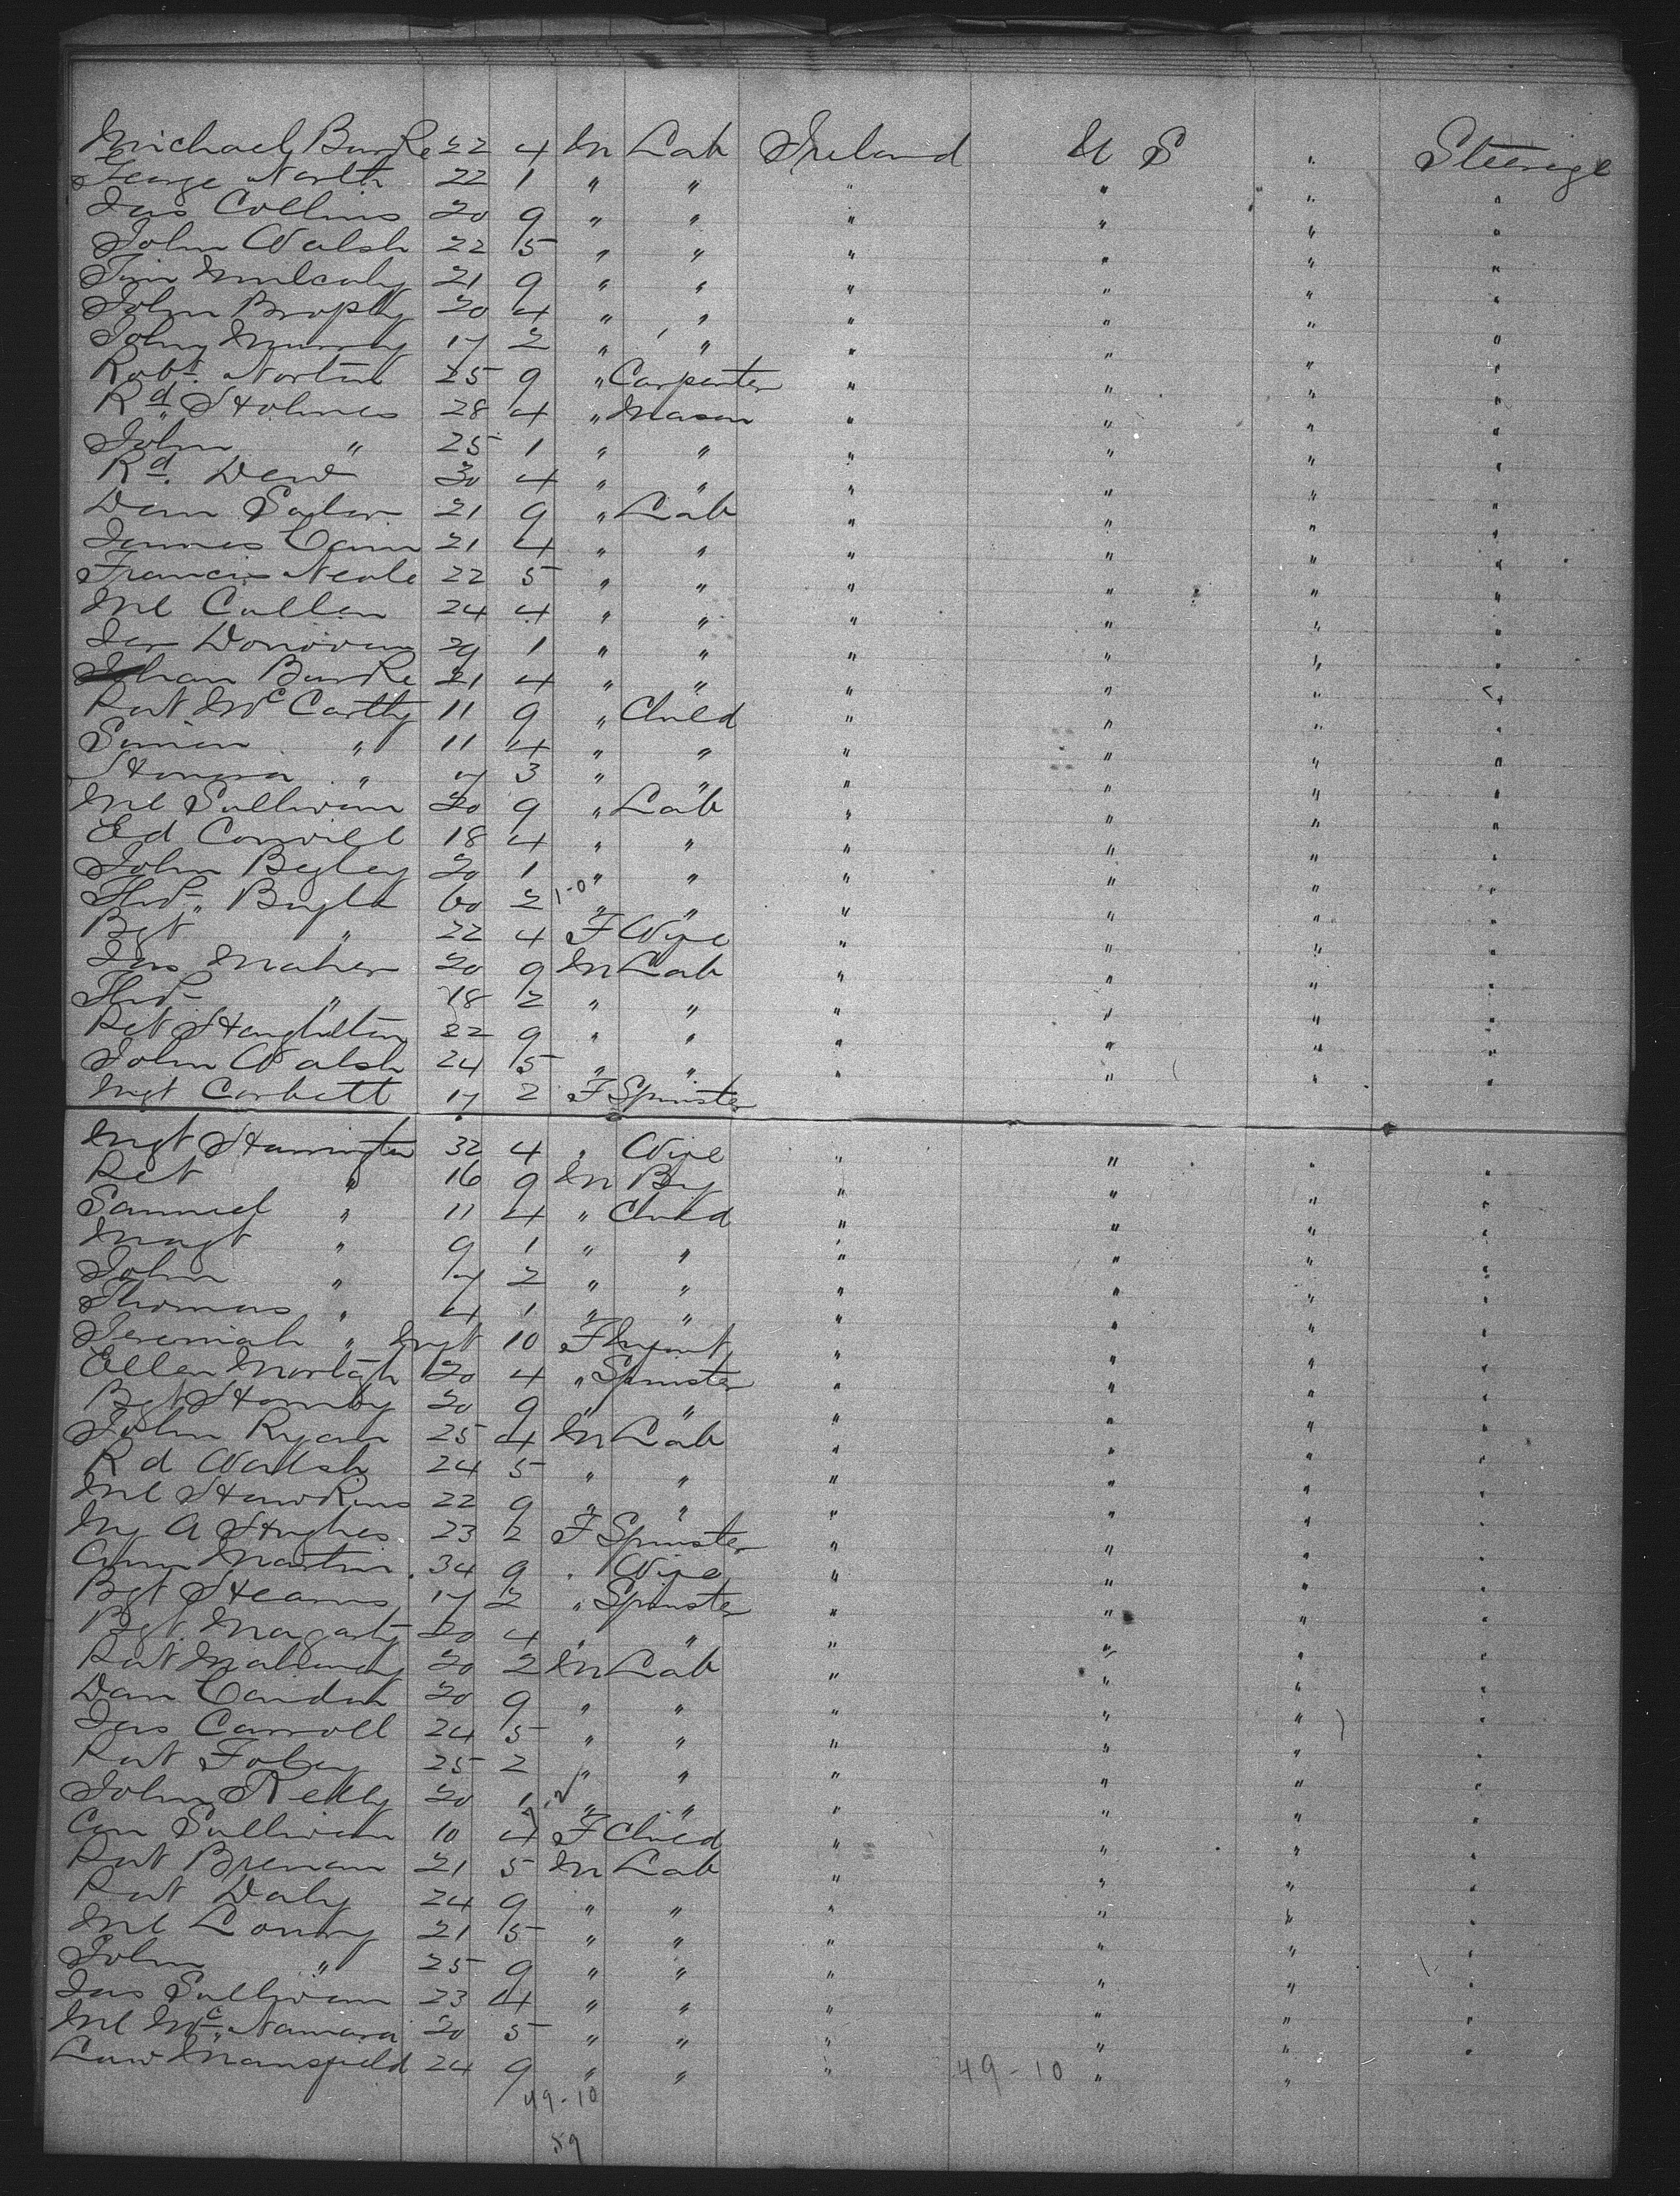 Michael Burke 22 4 M Lab Ireland U S " Steerage
George North 22 1 " " " " " "
Jas Collins 20 9 " " " " " "
John Walsh 22 5 " " " " " "
Tim Mulcahy 21 9 " " " " " "
John Brophy 20 4 " " " " " "
John Murray 17 2 " " " " " "
Robt. 25 9 " Carpenter " " " "
Rd Holmes 28 4 " Mason " " " "
John " 25 1 " " " " " "
Rd. 30 4 " " " " " "
Dan 21 9 " Lab " " " "
James 21 4 " " " " " "
Francis Neale 22 5 " " " " " "
Ml Cullen 24 4 " " " " " "
Jer Donovan 29 1 " " " " " "
Burke 21 4 " " " " " "
Pat McCarthy 11 9 " Child " " " "
Simon " 11 4 " " " " " "
Honora " 7 3 " " " " " "
Ml Sullivan 20 9 " Lab " " " "
Ed Conwill 18 4 " " " " " "
John Begley 20 1 " " " " " "
Thos. 60 2 1-0 " " " " " "
Bgt " 22 4 F Wife " " " "
Jas Maher 20 9 M Lab " " " "
Thos " 18 2 " " " " " "
Pat 22 9 " " " " " "
John Walsh 24 5 " " " " " "
Mgt Corbett 17 2 F Spinster
Mgt Harrington 32 4 " Wife " " " "
Pat " 16 9 M Boy " " " "
Samuel " 11 4 " Child " " " "
Magt " 9 1 " " " " " "
John " 7 2 " " " " " "
Thomas " 4 1 " " " " " "
Jeremiah " 10 F Infant " " " "
Ellen 20 4 " Spinster " " " "
Bgt 20 9 " " " " " "
John Ryan 25 4 M Lab " " " "
Rd Walsh 24 5 " " " " " "
Ml Hawkins 22 9 " " " " " "
My A Hughes 23 2 F Spinster " " " "
Ann Martin 34 9 " Wife " " " "
Bgt Hearns 17 2 " Spinster " " " "
Bgt 20 4 " " " " " "
Pat 20 2 M Lab " " " "
Dan 20 9 " " " " " "
Jas Carroll 24 5 " " " " " "
Pat 25 2 " " " " " "
John Kelly 20 1 " " " " " "
Con Sullivan 10 4 F Child " " " "
Pat Brenan 21 5 M Lab " " " "
Pat Daly 24 9 " " " " " "
Ml 21 5 " " " " " "
John " 25 9 " " " " " "
Jas Sullivan 23 4 " " " " " "
Ml McNamara 20 5 " " " " " "
Law Mansfield 24 9 " " " 49-10 " "
49-10
59